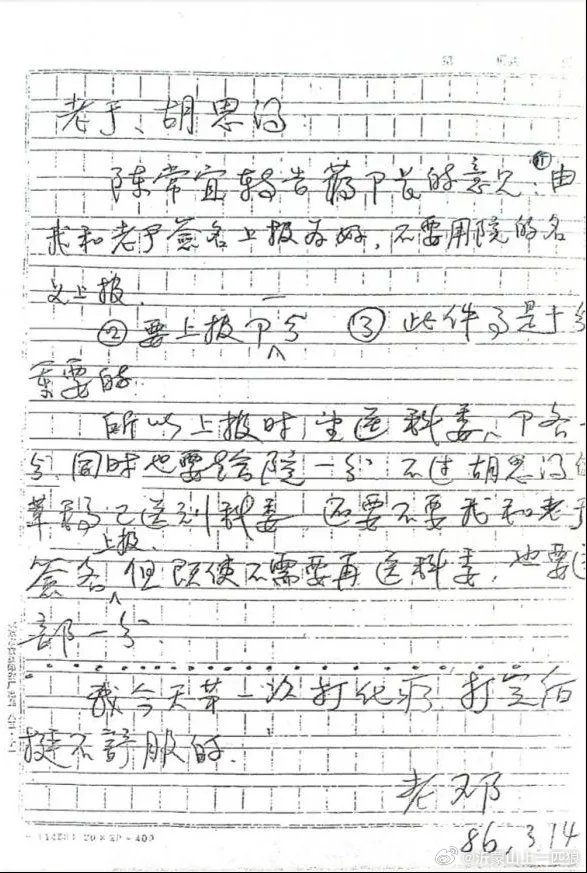 老于、胡思得
陈常宜转告蒋卩长的意见:①由
我和老于签名上报为好,不要用院的名
义上报.
②要上报卩一分 ③此件事是十分
重要的.
所以上报时,望送科委、卩各一
分,同时也要给院一分 不过胡思得的
草稿已送到科委 还要不要我和老于
签名上报.但既使不需要再送科委,也要送
部一分.
我今天第一次打化疗,打完后
挺不舒服的.
老邓
86,3,14
(1428) 20×20=400
@沂蒙山上一匹狼